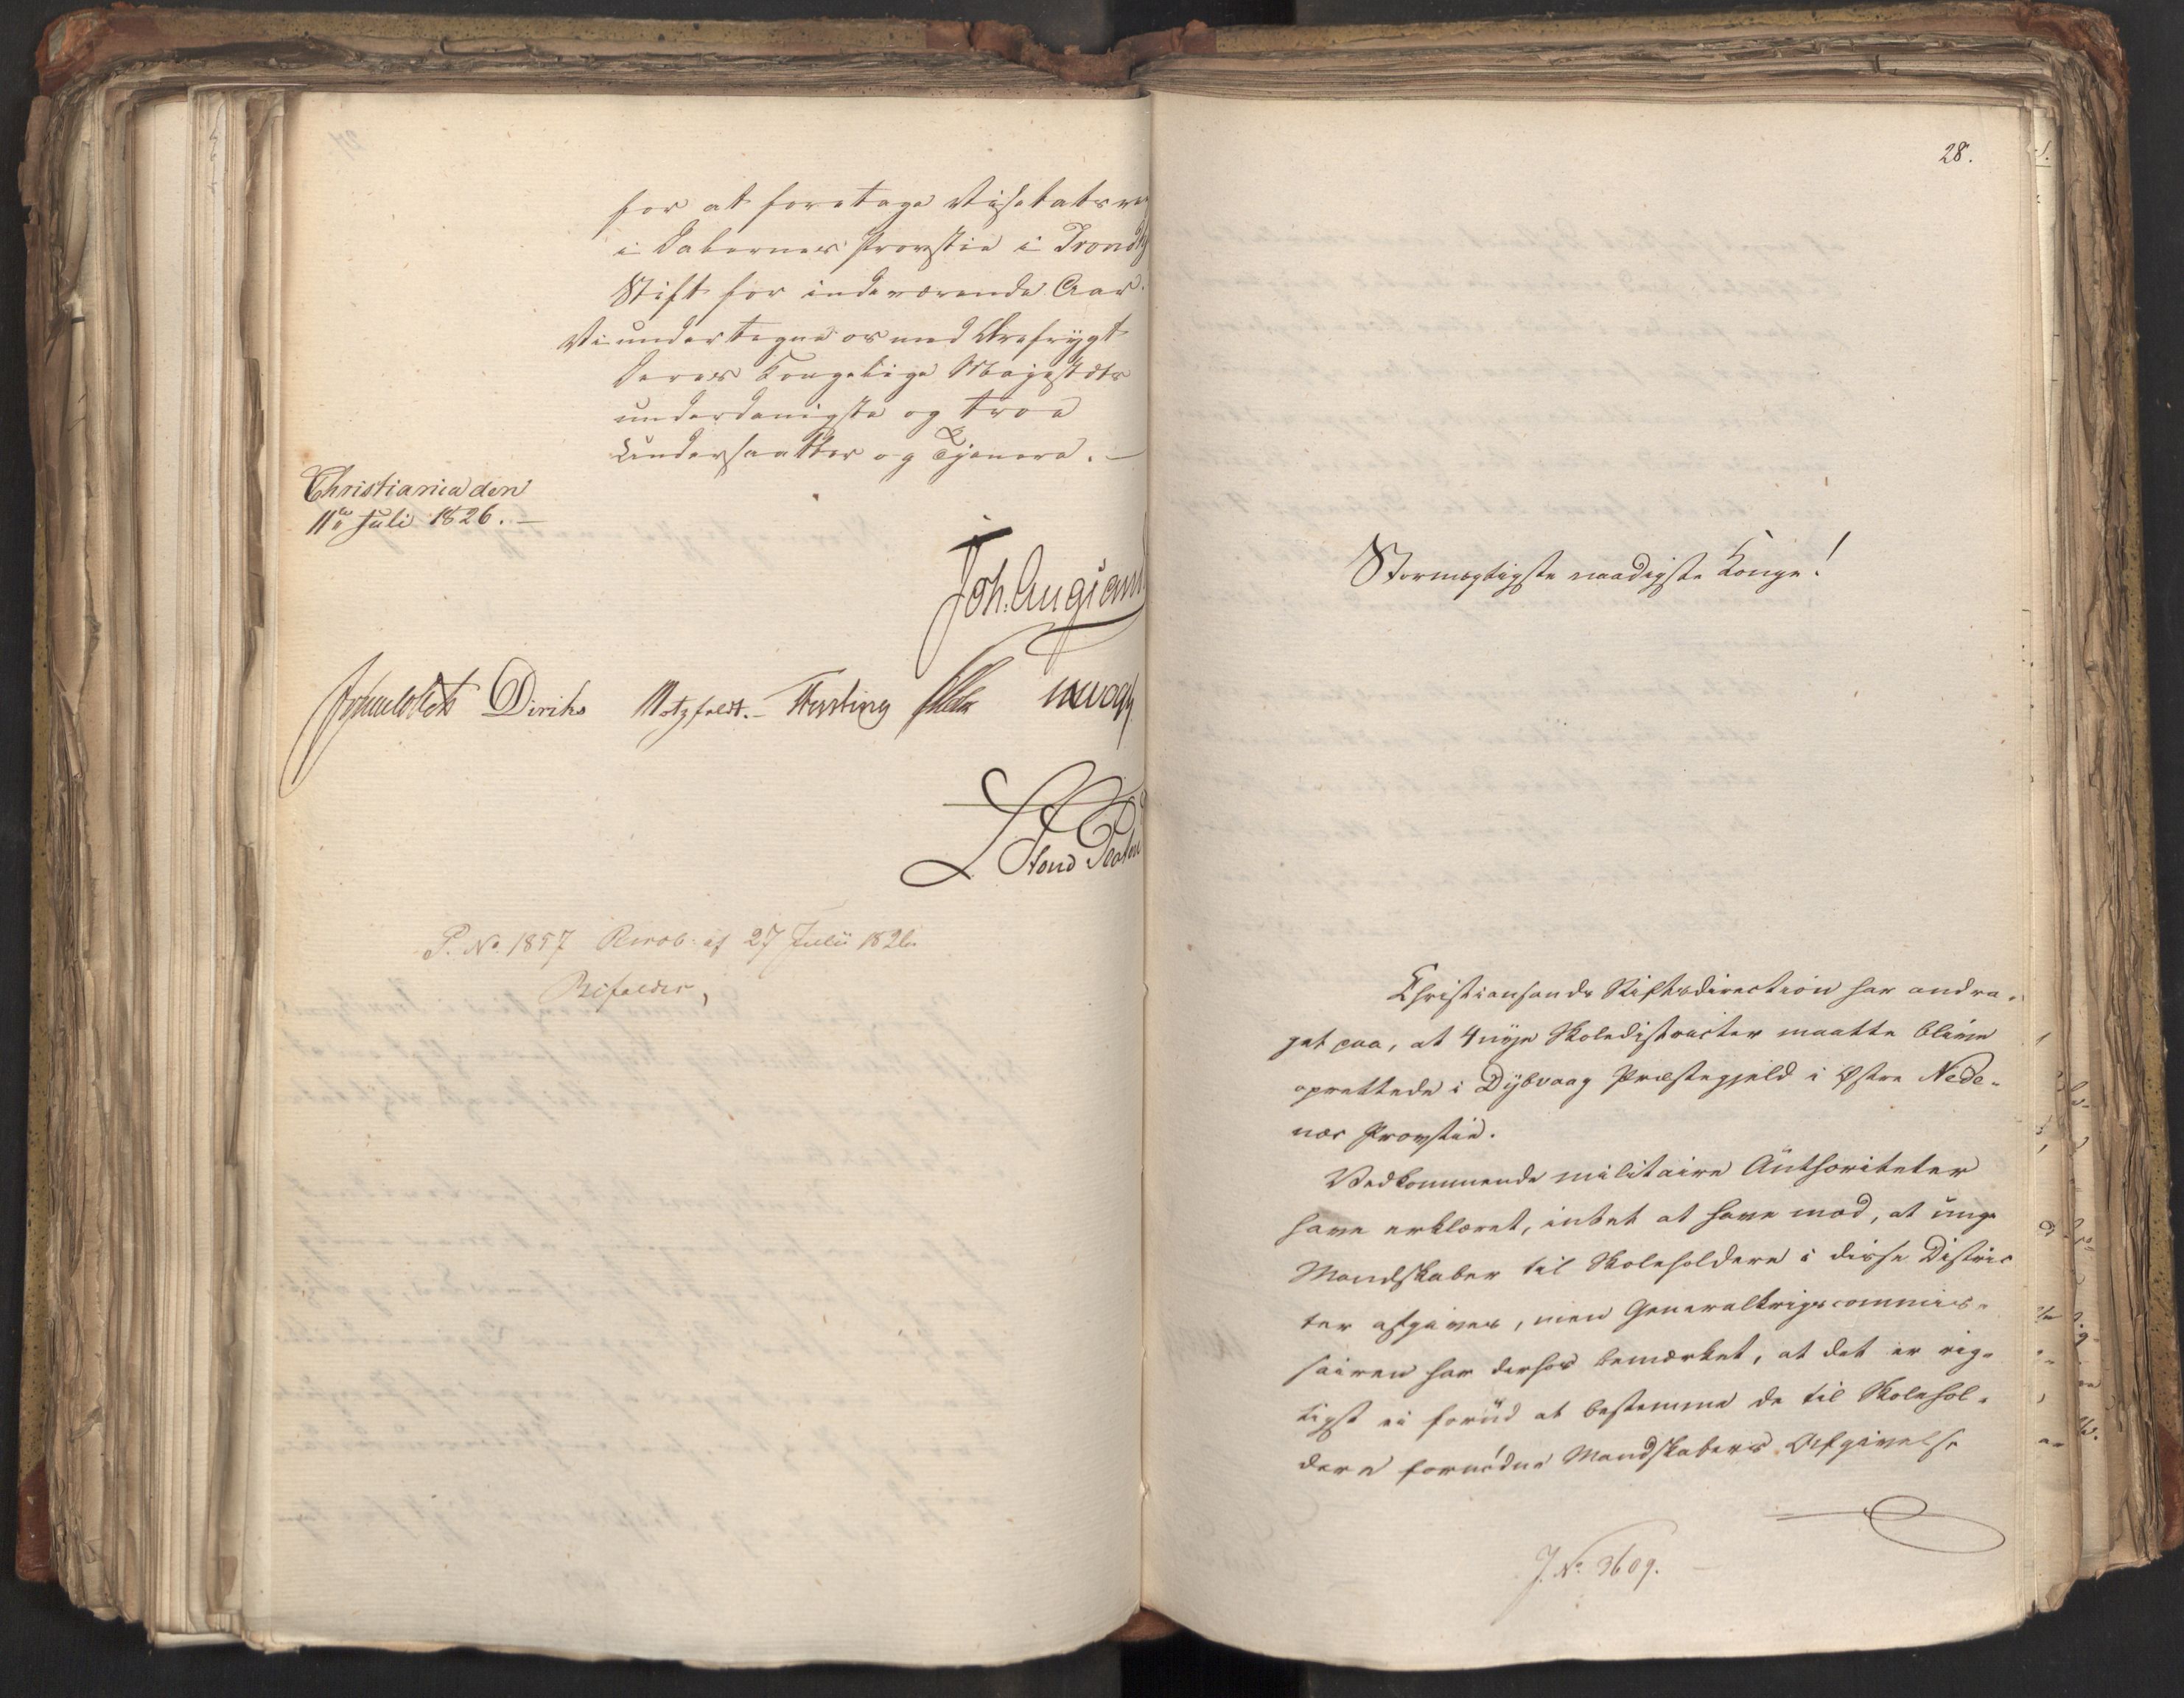 for at foretage Visitatser
i Dalernes Provstie i Trondhj
Stift for indeværende Aar.
Vi undertegne os med Ærefrygt
Deres Kongelige Majestæts
underdanigste og troe
Undersaatter og Tjenere. —
Christiania den
11te Juli 1826. —
Joh. Aug. Sand
Diriks Motzfeldt. – Hersting
L. Stoud Platou
P. No 1857 Resol: af 27 Julii 1826
Bifaldes,
28.
Stormægtigste naadigste Konge!
Christiansands Stiftsdirection har andra-
get paa, at 4 nye Skoledistricter maatte blive
oprettede i Dybvaag Præstegjeld i Østre Nede-
næs Provstie.
Vedkommende militaire Authoriteter
have erklæret, intet at have mod, at unge
Mandskaber til Skoleholdere i disse Distric
ter afgives, men Generalkrigscommis-
sairen har derhos bemærket, at det er rig-
tigst ei forud at bestemme de til Skolehol-
dere fornødne Mandskabers Afgivelse
J. No. 3609. —